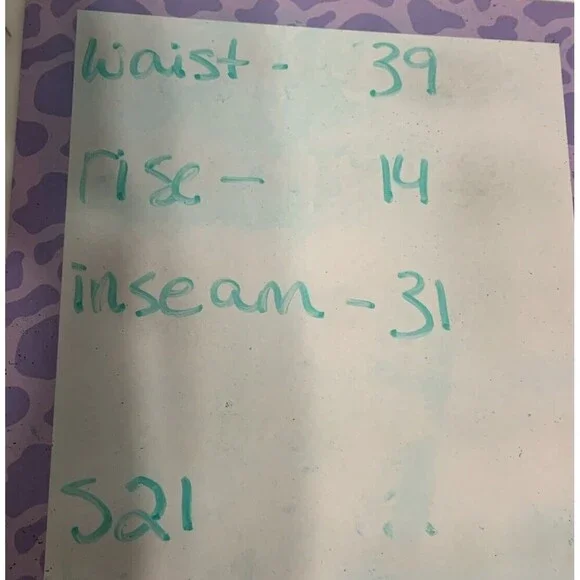 waist - 39
rise - 14
inseam - 31
S21